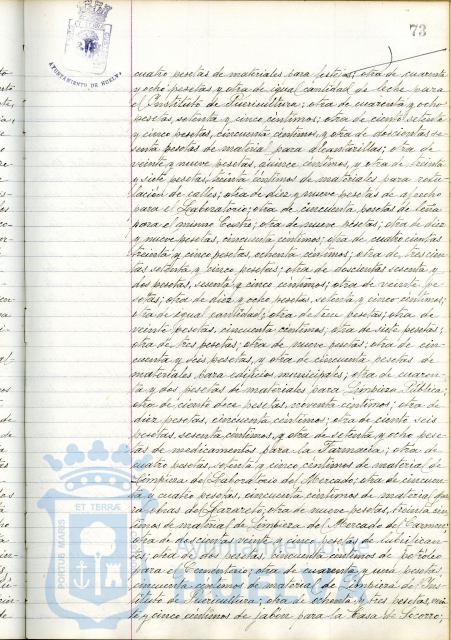 73
AYUNTAMIENTO DE HUELVA
cuatro pesetas de materiales para festejos; otra de cuarenta
y ocho pesetas, y otra de igual cantidad de leche para
el Instituto de Puericultura; otra de cuarenta y ocho
pesetas, setenta y cinco céntimos; otra de ciento setenta
y cinco pesetas, cincuenta céntimos, y otra de doscientas se-
senta pesetas de material para alcantarillas; otra de
veinte y nueve pesetas, quince céntimos, y otra de treinta
y siete pesetas, treinta céntimos de materiales para rotu-
lación de calles; otra de diez y nueve pesetas de afrecho
para el Laboratorio; otra de cincuenta pesetas de leña
para el mismo Centro; otra de nueve pesetas; otra de diez
y nueve pesetas, cincuenta céntimos; otra de cuatrocientas
treinta y cinco pesetas, ochenta céntimos; otra de trescien-
tas setenta y cinco pesetas; otra de doscientas sesenta y
dos pesetas, sesenta y cinco céntimos; otra de veinte pe-
setas; otra de diez y ocho pesetas, setenta y cinco céntimos;
otra de igual cantidad; otra de pesetas; otra de
veinte pesetas, cincuenta céntimos; otra de siete pesetas;
otra de tres pesetas; otra de nueve pesetas; otra de cin-
cuenta y seis pesetas, y otra de cincuenta pesetas de
materiales para edificios municipales; otra de cuaren-
ta y dos pesetas de materiales para Limpieza Pública;
otra de ciento doce pesetas, noventa céntimos; otra de
diez pesetas, cincuenta céntimos; otra de ciento seis
pesetas, sesenta céntimos, y otra de setenta y ocho pese-
tas de medicamentos para la Farmacia; otra de
cuatro pesetas, setenta y cinco céntimos de material de
Limpieza de Laboratorio del Mercado; otra de cincuen-
ta y cuatro pesetas, cincuenta céntimos de material pa-
ra obras de Lazareto; otra de nueve pesetas, treinta cén-
timos de material de Limpieza del Mercado del Carmen;
otra de doscientas veinte y cinco pesetas de lubrifican-
tes; otra de dos pesetas, cincuenta céntimos de petróleo
para el Cementerio; otra de cuarenta y una pesetas,
cincuenta céntimos de material de Limpieza del Ins-
tituto de Puericultura; otra de ochenta y tres pesetas, vein-
te y cinco céntimos de jabón para la Casa de Socorro;
PORTUS MARIS
ET TERRÆ
HUELVA